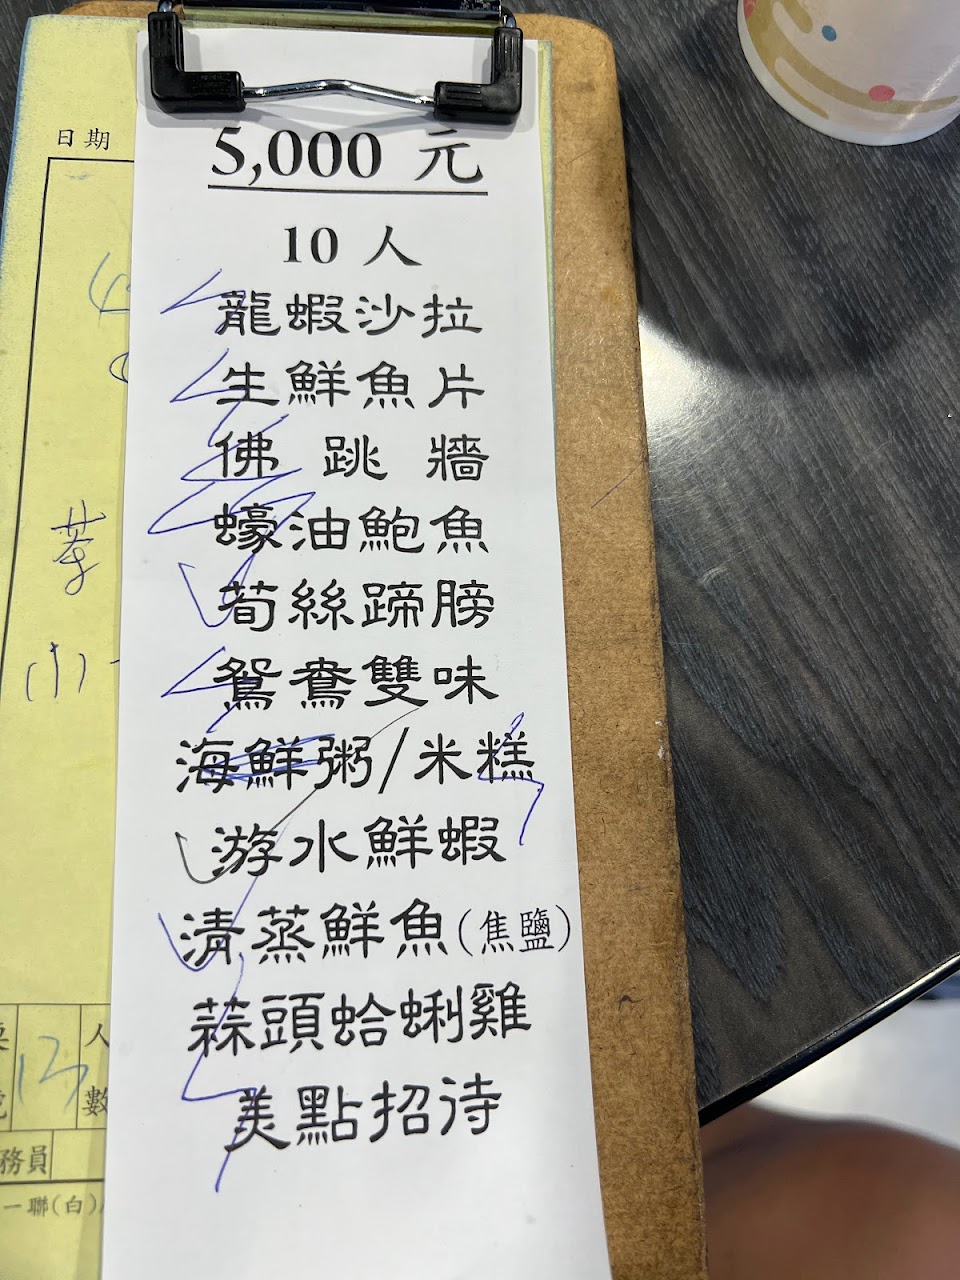 日期
5,000 元
10 人
龍蝦沙拉
生鮮魚片
佛跳牆
蠔油鮑魚
荀絲蹄膀
鴛鴦雙味
海鮮粥/米糕
游水鮮蝦
清蒸鮮魚(焦鹽)
蒜頭蛤蜊雞
美點招待
人數
務員
一聯(白)